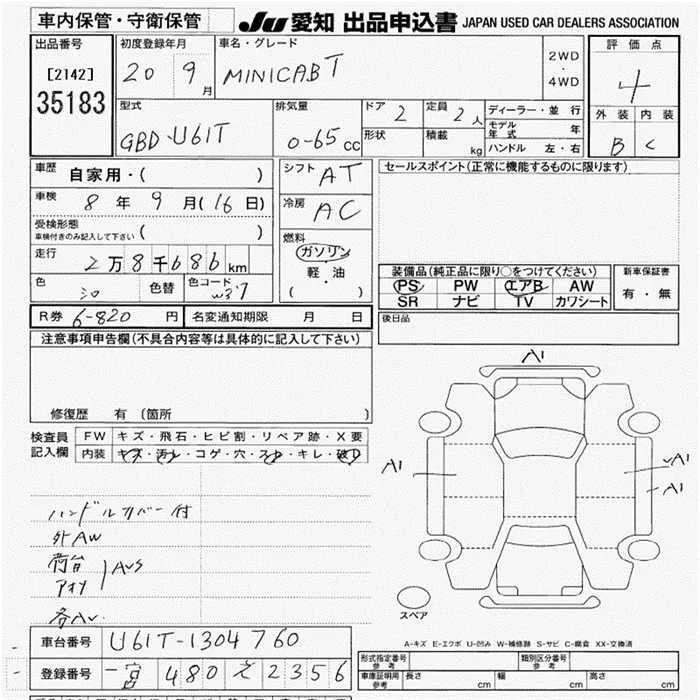 車内保管・守衛保管
JU 愛知 出品申込書 JAPAN USED CAR DEALERS ASSOCIATION
出品番号
[2142]
35183
初度登録年月
20 9月
車名・グレード
MINICAB T
2WD
・
4WD
評価点
4
外装 内装
B C
型式
GBD-U61T
排気量
0-65 cc
ドア 2
定員 2人
形状
積載 kg
ディーラー・並行
モデル年式 年
ハンドル 左・右
車歴
自家用・( )
車検
8年 9月(16日)
受検形態
車検付きのみ記入して下さい ( )
走行
2万8千686km
色
シロ
色替
色コード
W37
シフト AT
冷房 AC
燃料
ガソリン
軽・油
( ・ )
セールスポイント(正常に機能するものに限ります)
装備品(純正品に限り○をつけてください)
PS PW エアB AW
SR ナビ TV カワシート
新車保証書
有・無
後日品
R券 6-820 円
名変通知期限 月 日
注意事項申告欄(不具合内容等は具体的に記入して下さい)
修復歴 有 (箇所 )
検査員
記入欄
FW キズ・飛石・ヒビ割・リペア跡・X要
内装 キズ・汚レ・コゲ・穴・スレ・キレ・破レ
ハンドルカバー付
外AW
荷台
アオリ
AUS
A1
A1
A1
A1
スペア
A-キズ E-エクボ U-凹み W-補修跡 S-サビ C-腐食 XX-交換済
車台番号 U61T-1304760
登録番号 一宮 480 え 2356
形式指定番号
参考
類別区分番号
参考
車庫証明用
参考
長さ cm 幅 cm 高さ cm